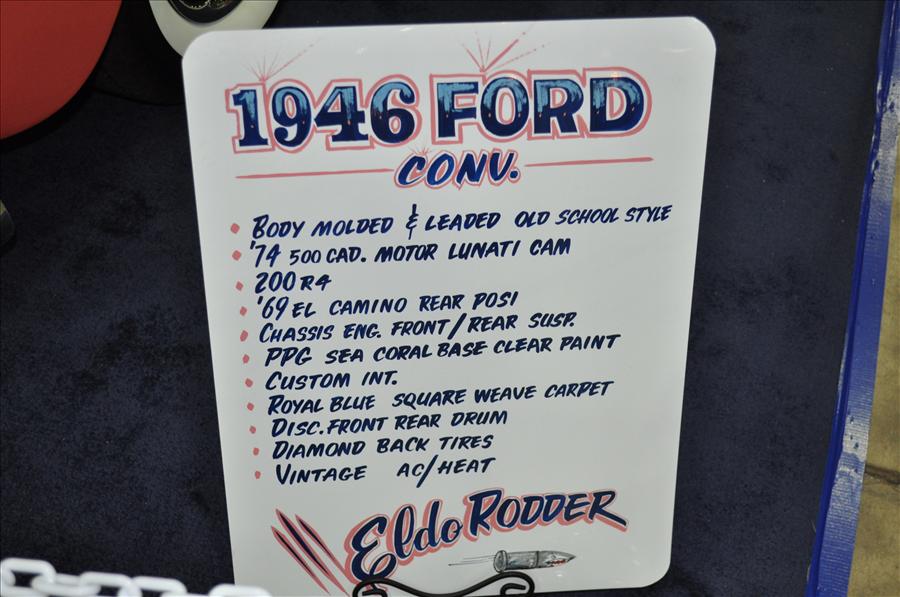 1946 FORD
CONV.
• BODY MOLDED & LEADED OLD SCHOOL STYLE
• '74 500 CAD. MOTOR LUNATI CAM
• 200 R4
• '69 EL CAMINO REAR POSI
• CHASSIS ENG. FRONT/REAR SUSP.
• PPG SEA CORAL BASE CLEAR PAINT
• CUSTOM INT.
• ROYAL BLUE SQUARE WEAVE CARPET
• DISC. FRONT REAR DRUM
• DIAMOND BACK TIRES
• VINTAGE AC/HEAT
Eldo RODDER